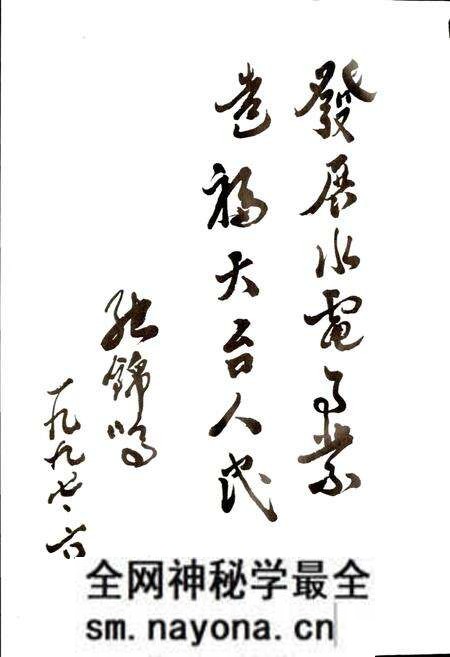 發展水電事業
造福天台人民
張錦鳴
一九九七、六
全网神秘学最全
sm.nayona.cn